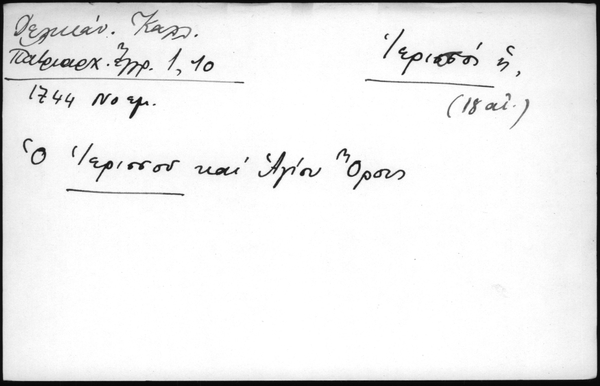 Δελικάν. Καλλ.
Πατριαρχ. Ἔγγρ. 1, 10
1744 Νοεμ.
Ἱερισσός ἡ,
(18 αἰ.)
Ὁ Ἱερισσοῦ καί Ἁγίου Ὄρους